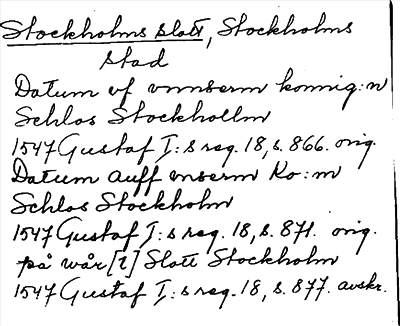 Stockholms slott, Stockholms
stad
Datum vf vnnserm konnig:n
Schlos Stockhollm
1547 Gustaf I:s reg. 18, s. 866. orig.
Datum auff vnserm Ko:m
Schlos Stockholm
1547 Gustaf I:s reg. 18, s. 871. orig.
på wår [?] Slott Stockholm
1547 Gustaf I:s reg. 18, s. 877. avskr.